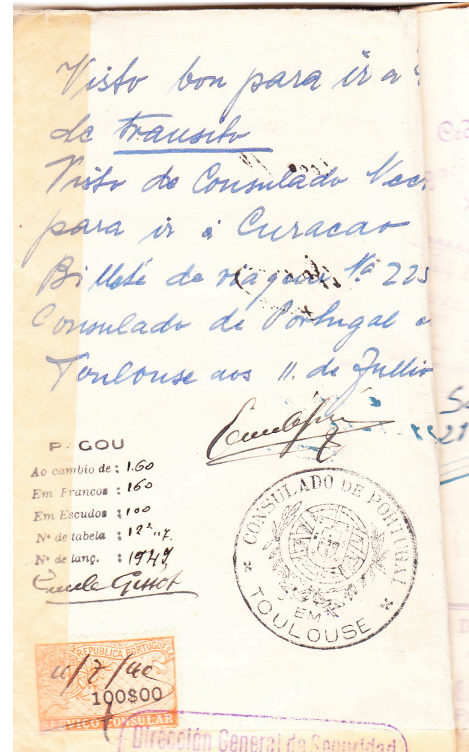 Visto bon para ir a
de transito
Visto do Consulado
para ir á Curacao
Billete de viagem Nº 225
Consulado de Portugal
Toulouse aos 11. de Jullio
P. GOU
Ao cambio de : 1.60
Em Francos : 160
Em Escudos : 100
Nº de tabela :
Nº de lanç. : 1949
CONSULADO DE PORTUGAL
EM
TOULOUSE
REPUBLICA PORTUGUESA
100$00
SERVIÇO CONSULAR
Dirección General de Seguridad